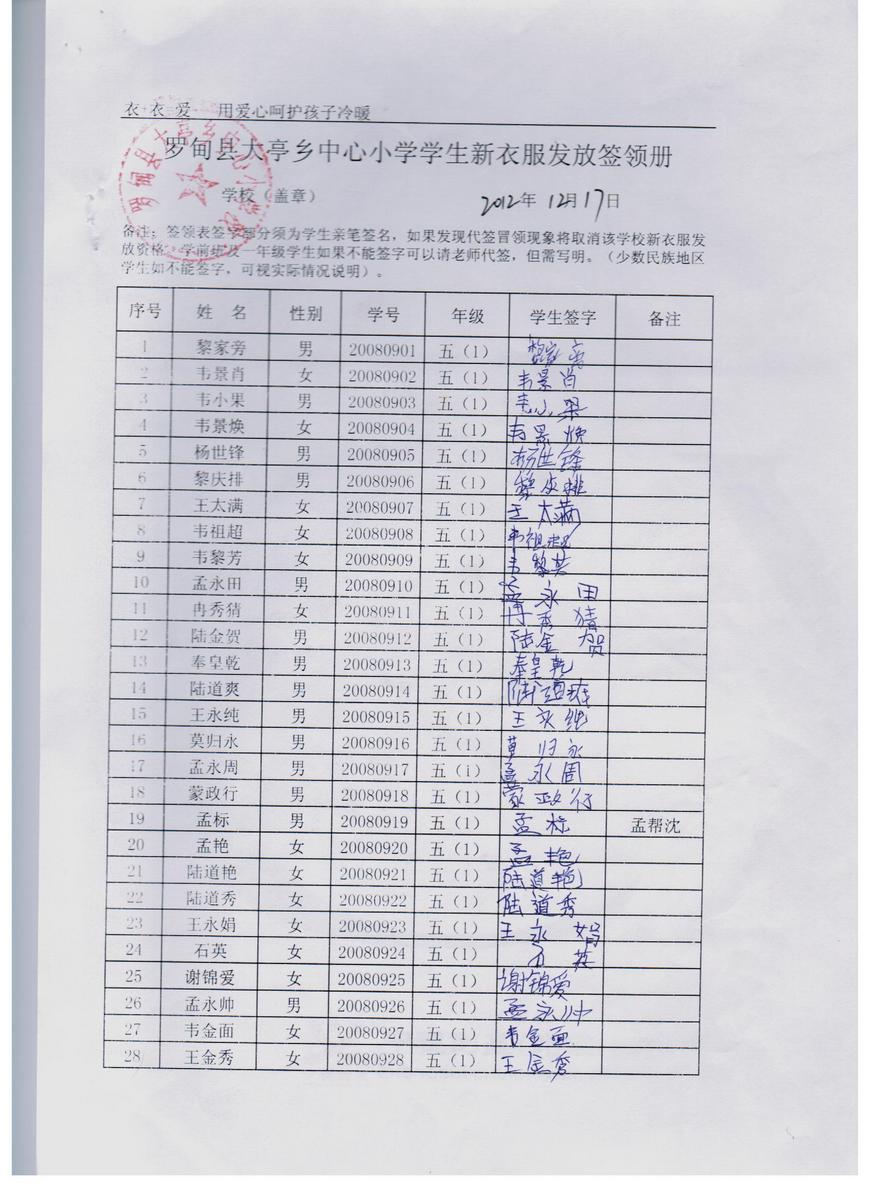 衣+衣=爱 用爱心呵护孩子冷暖
罗甸县大亭乡中心小学学生新衣服发放签领册
学校（盖章） 2012年 12月17日
备注：签领表签字部分须为学生亲笔签名，如果发现代签冒领现象将取消该学校新衣服发
放资格。学前班及一年级学生如果不能签字可以请老师代签，但需写明。（少数民族地区
学生如不能签字，可视实际情况说明）。
序号 姓 名 性别 学号 年级 学生签字 备注
1 黎家旁 男 20080901 五（1） 黎家旁
2 韦景肖 女 20080902 五（1） 韦景肖
3 韦小果 男 20080903 五（1） 韦小果
4 韦景焕 女 20080904 五（1） 韦景焕
5 杨世锋 男 20080905 五（1） 杨世锋
6 黎庆排 男 20080906 五（1） 黎庆排
7 王太满 女 20080907 五（1） 王太满
8 韦祖超 女 20080908 五（1） 韦祖超
9 韦黎芳 女 20080909 五（1） 韦黎芳
10 孟永田 男 20080910 五（1） 孟永田
11 冉秀猜 女 20080911 五（1） 冉秀猜
12 陆金贺 男 20080912 五（1） 陆金贺
13 奉皇乾 男 20080913 五（1） 奉皇乾
14 陆道爽 男 20080914 五（1） 陆道爽
15 王永纯 男 20080915 五（1） 王永纯
16 莫归永 男 20080916 五（1） 莫归永
17 孟永周 男 20080917 五（1） 孟永周
18 蒙政行 男 20080918 五（1） 蒙政行
19 孟标 男 20080919 五（1） 孟标 孟帮沈
20 孟艳 女 20080920 五（1） 孟艳
21 陆道艳 女 20080921 五（1） 陆道艳
22 陆道秀 女 20080922 五（1） 陆道秀
23 王永娟 女 20080923 五（1） 王永娟
24 石英 女 20080924 五（1） 石英
25 谢锦爱 女 20080925 五（1） 谢锦爱
26 孟永帅 男 20080926 五（1） 孟永帅
27 韦金面 女 20080927 五（1） 韦金面
28 王金秀 女 20080928 五（1） 王金秀